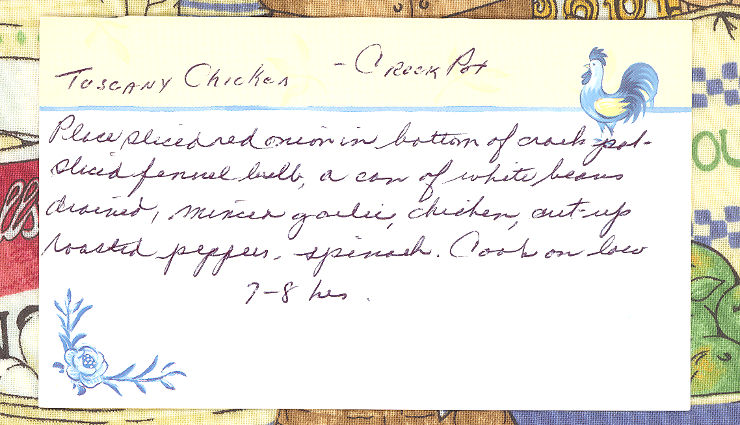 Tuscany Chicken - Crock Pot
Place sliced red onion in bottom of crock-pot -
sliced fennel bulb, a can of white beans
drained, minced garlic, chicken, cut-up
roasted peppers, spinach. Cook on low
7-8 hrs.